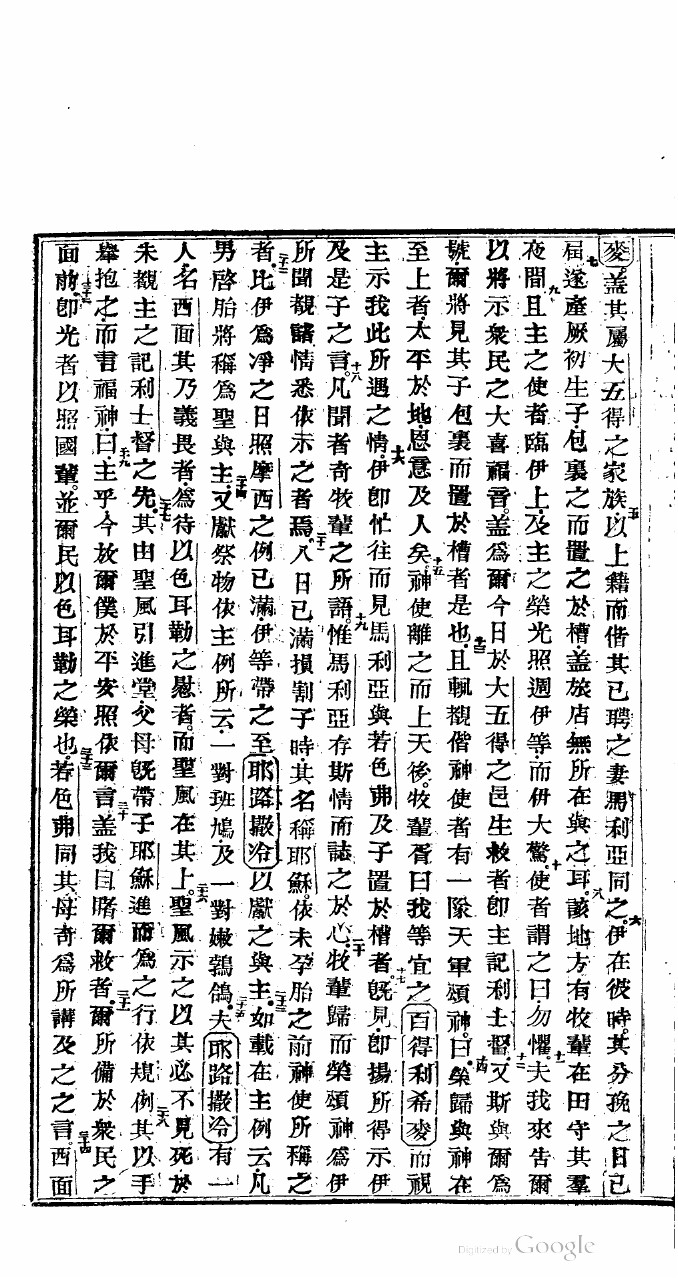 麥蓋其屬大五得之家族五以上籍而偕其已聘之妻馬利亞同之六伊在彼時其分挽之日已
屆七遂產厥初生子包裏之而置之於槽蓋旅店無所在與之耳八該地方有牧輩在田守其羣
夜間九且主之使者臨伊上及主之榮光照週伊等而伊大驚十使者謂之曰勿懼十一夫我來告爾
以將示衆民之大喜福音蓋爲爾今日於大五得之邑生救者卽主記利士督十二又斯與爾爲
號爾將見其子包裏而置於槽者是也十三且輒覩偕神使者有一隊天軍頌神曰十四榮歸與神在
至上者太平於地恩意及人矣十五神使離之而上天後牧輩胥曰我等宜之百得利希麥而視
主示我此所遇之情十六伊卽忙往而見馬利亞與若色弗及子置於槽者十七旣見卽揚所得示伊
及是子之言十八凡聞者奇牧輩之所語十九惟馬利亞存斯情而誌之於心二十牧輩歸而榮頌神爲伊
所聞覩諸情悉依示之者焉二十一八日已滿損割子時其名稱耶穌依未孕胎之前神使所稱之
者二十二比伊爲淨之日照摩西之例已滿伊等帶之至耶路撒冷以獻之與主二十三如載在主例云凡
男啓胎將稱爲聖與主二十四又獻祭物依主例所云一對班鳩及一對嫩鵓鴿二十五夫耶路撒冷有一
人名西面其乃義畏者爲待以色耳勒之慰者而聖風在其上二十六聖風示之以其必不見死於
未觀主之記利士督之先二十七其由聖風引進堂父母旣帶子耶穌進而爲之行依規例二十八其以手
舉抱之而言福神曰二十九主乎今放爾僕於平安照依爾言三十蓋我目睹爾救者三十一爾所備於衆民之
面前三十二卽光者以照國輩並爾民以色耳勒之榮也三十三若色弗同其母奇爲所講及之之言三十四西面
Digitized by Google